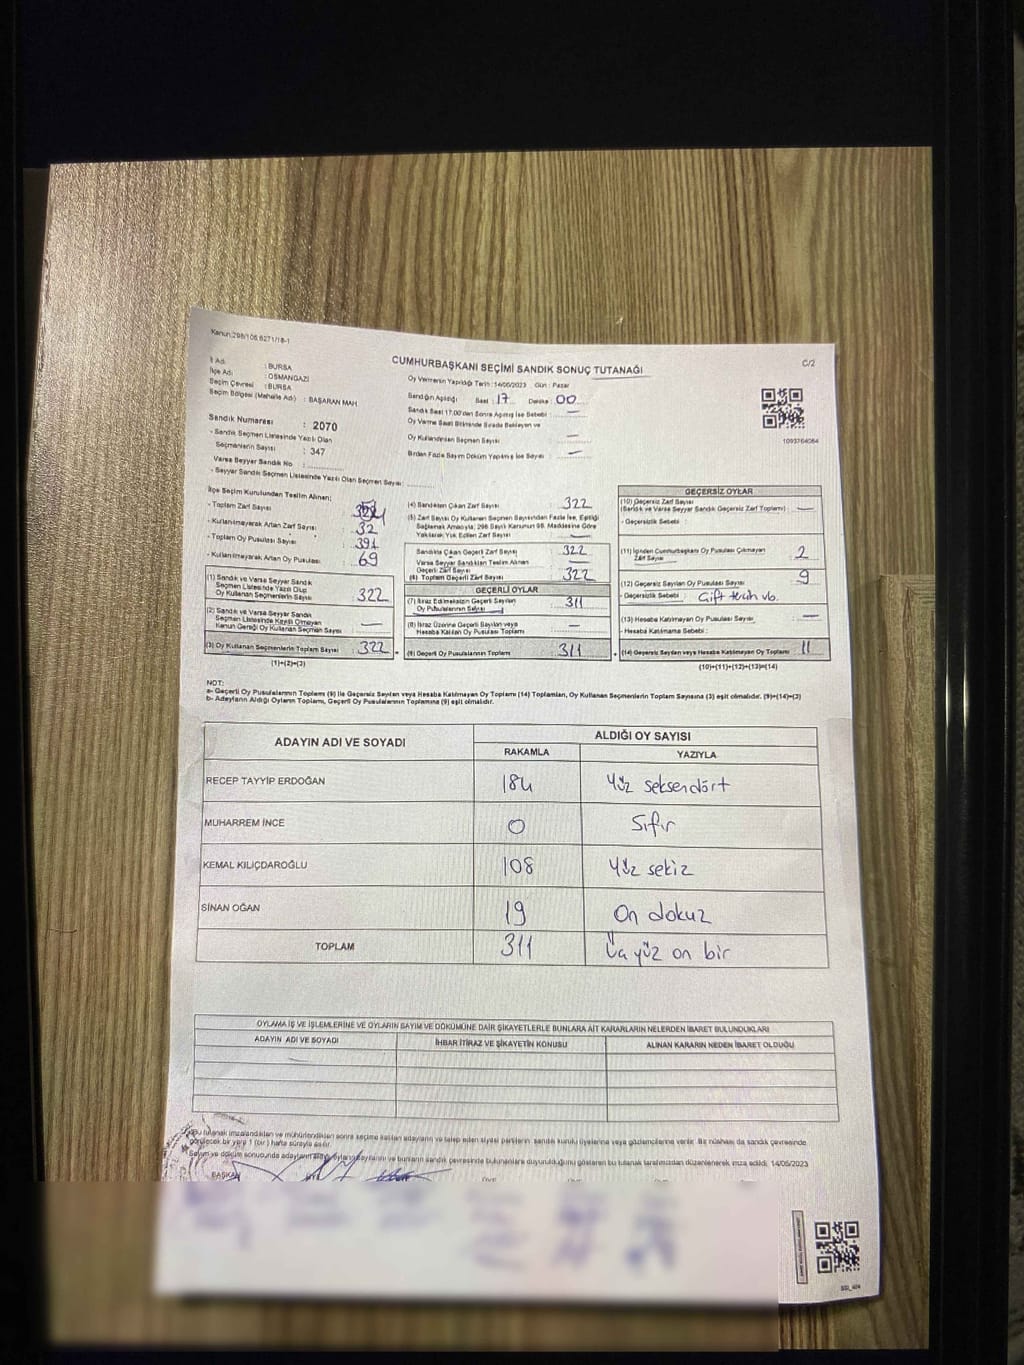 Kanun:298/105,6271/18-1
CUMHURBAŞKANI SEÇİMİ SANDIK SONUÇ TUTANAĞI
C/2
İl Adı : BURSA
İlçe Adı : OSMANGAZİ
Seçim Çevresi : BURSA
Seçim Bölgesi (Mahalle Adı) : BAŞARAN MAH
Oy Vermenin Yapıldığı Tarih : 14/05/2023 Gün : Pazar
Sandığın Açıldığı Saat : 17 Dakika : 00
Sandık Saat 17.00'den Sonra Açılmış İse Sebebi : —
Oy Verme Saati Bitiminde Sırada Bekleyen ve
Oy Kullandırılan Seçmen Sayısı —
Birden Fazla Sayım Döküm Yapılmış İse Sayısı —
1093764064
Sandık Numarası : 2070
- Sandık Seçmen Listesinde Yazılı Olan
Seçmenlerin Sayısı : 347
Varsa Seyyar Sandık No :
- Seyyar Sandık Seçmen Listesinde Yazılı Olan Seçmen Sayısı
İlçe Seçim Kurulundan Teslim Alınan;
- Toplam Zarf Sayısı
- Kullanılmayarak Artan Zarf Sayısı 32
- Toplam Oy Pusulası Sayısı 391
- Kullanılmayarak Artan Oy Pusulası 69
(1) Sandık ve Varsa Seyyar Sandık
Seçmen Listesinde Yazılı Olup
Oy Kullanan Seçmenlerin Sayısı : 322
(2) Sandık ve Varsa Seyyar Sandık
Seçmen Listesinde Kayıtlı Olmayan
Kanun Gereği Oy Kullanan Seçmen Sayısı —
(3) Oy Kullanan Seçmenlerin Toplam Sayısı : 322
(1)+(2)=(3)
(4) Sandıktan Çıkan Zarf Sayısı 322
(5) Zarf Sayısı Oy Kullanan Seçmen Sayısından Fazla İse, Eşitliği
Sağlamak Amacıyla; 298 Sayılı Kanunun 98. Maddesine Göre
Yakılarak Yok Edilen Zarf Sayısı —
Sandıkta Çıkan Geçerli Zarf Sayısı 322
Varsa Seyyar Sandıktan Teslim Alınan
Geçerli Zarf Sayısı —
(6) Toplam Geçerli Zarf Sayısı 322
GEÇERLİ OYLAR
(7) İtiraz Edilmeksizin Geçerli Sayılan
Oy Pusulalarının Sayısı 311
(8) İtiraz Üzerine Geçerli Sayılan veya
Hesaba Katılan Oy Pusulası Toplamı —
(9) Geçerli Oy Pusulalarının Toplamı 311
GEÇERSİZ OYLAR
(10) Geçersiz Zarf Sayısı
(Sandık ve Varsa Seyyar Sandık Geçersiz Zarf Toplamı) —
- Geçersizlik Sebebi :
(11) İçinden Cumhurbaşkanı Oy Pusulası Çıkmayan
Zarf Sayısı 2
(12) Geçersiz Sayılan Oy Pusulası Sayısı 9
- Geçersizlik Sebebi : Çift tercih vb.
(13) Hesaba Katılmayan Oy Pusulası Sayısı —
- Hesaba Katılmama Sebebi :
(14) Geçersiz Sayılan veya Hesaba Katılmayan Oy Toplamı 11
(10)+(11)+(12)+(13)=(14)
NOT:
a- Geçerli Oy Pusulalarının Toplamı (9) ile Geçersiz Sayılan veya Hesaba Katılmayan Oy Toplamı (14) Toplamları, Oy Kullanan Seçmenlerin Toplam Sayısına (3) eşit olmalıdır. (9)+(14)=(3)
b- Adayların Aldığı Oyların Toplamı, Geçerli Oy Pusulalarının Toplamına (9) eşit olmalıdır.
ADAYIN ADI VE SOYADI
ALDIĞI OY SAYISI
RAKAMLA YAZIYLA
RECEP TAYYİP ERDOĞAN 184 Yüz seksendört
MUHARREM İNCE 0 Sıfır
KEMAL KILIÇDAROĞLU 108 Yüz sekiz
SİNAN OĞAN 19 On dokuz
TOPLAM 311 Üç yüz on bir
OYLAMA İŞ VE İŞLEMLERİNE VE OYLARIN SAYIM VE DÖKÜMÜNE DAİR ŞİKAYETLERLE BUNLARA AİT KARARLARIN NELERDEN İBARET BULUNDUKLARI
ADAYIN ADI VE SOYADI İHBAR İTİRAZ VE ŞİKAYETİN KONUSU ALINAN KARARIN NEDEN İBARET OLDUĞU
Bu tutanak imzalandıktan ve mühürlendikten sonra seçime katılan adayların ve talep eden siyasi partilerin sandık kurulu üyelerine veya gözlemcilerine verilir. Bir nüshası da sandık çevresinde
görülecek bir yere 1 (bir) hafta süreyle asılır.
Sayım ve döküm sonucunda adayların aldığı oyların sayılarını ve bunların sandık çevresinde bulunanlara duyurulduğunu gösteren bu tutanak tarafımızdan düzenlenerek imza edildi. 14/05/2023
BAŞKAN